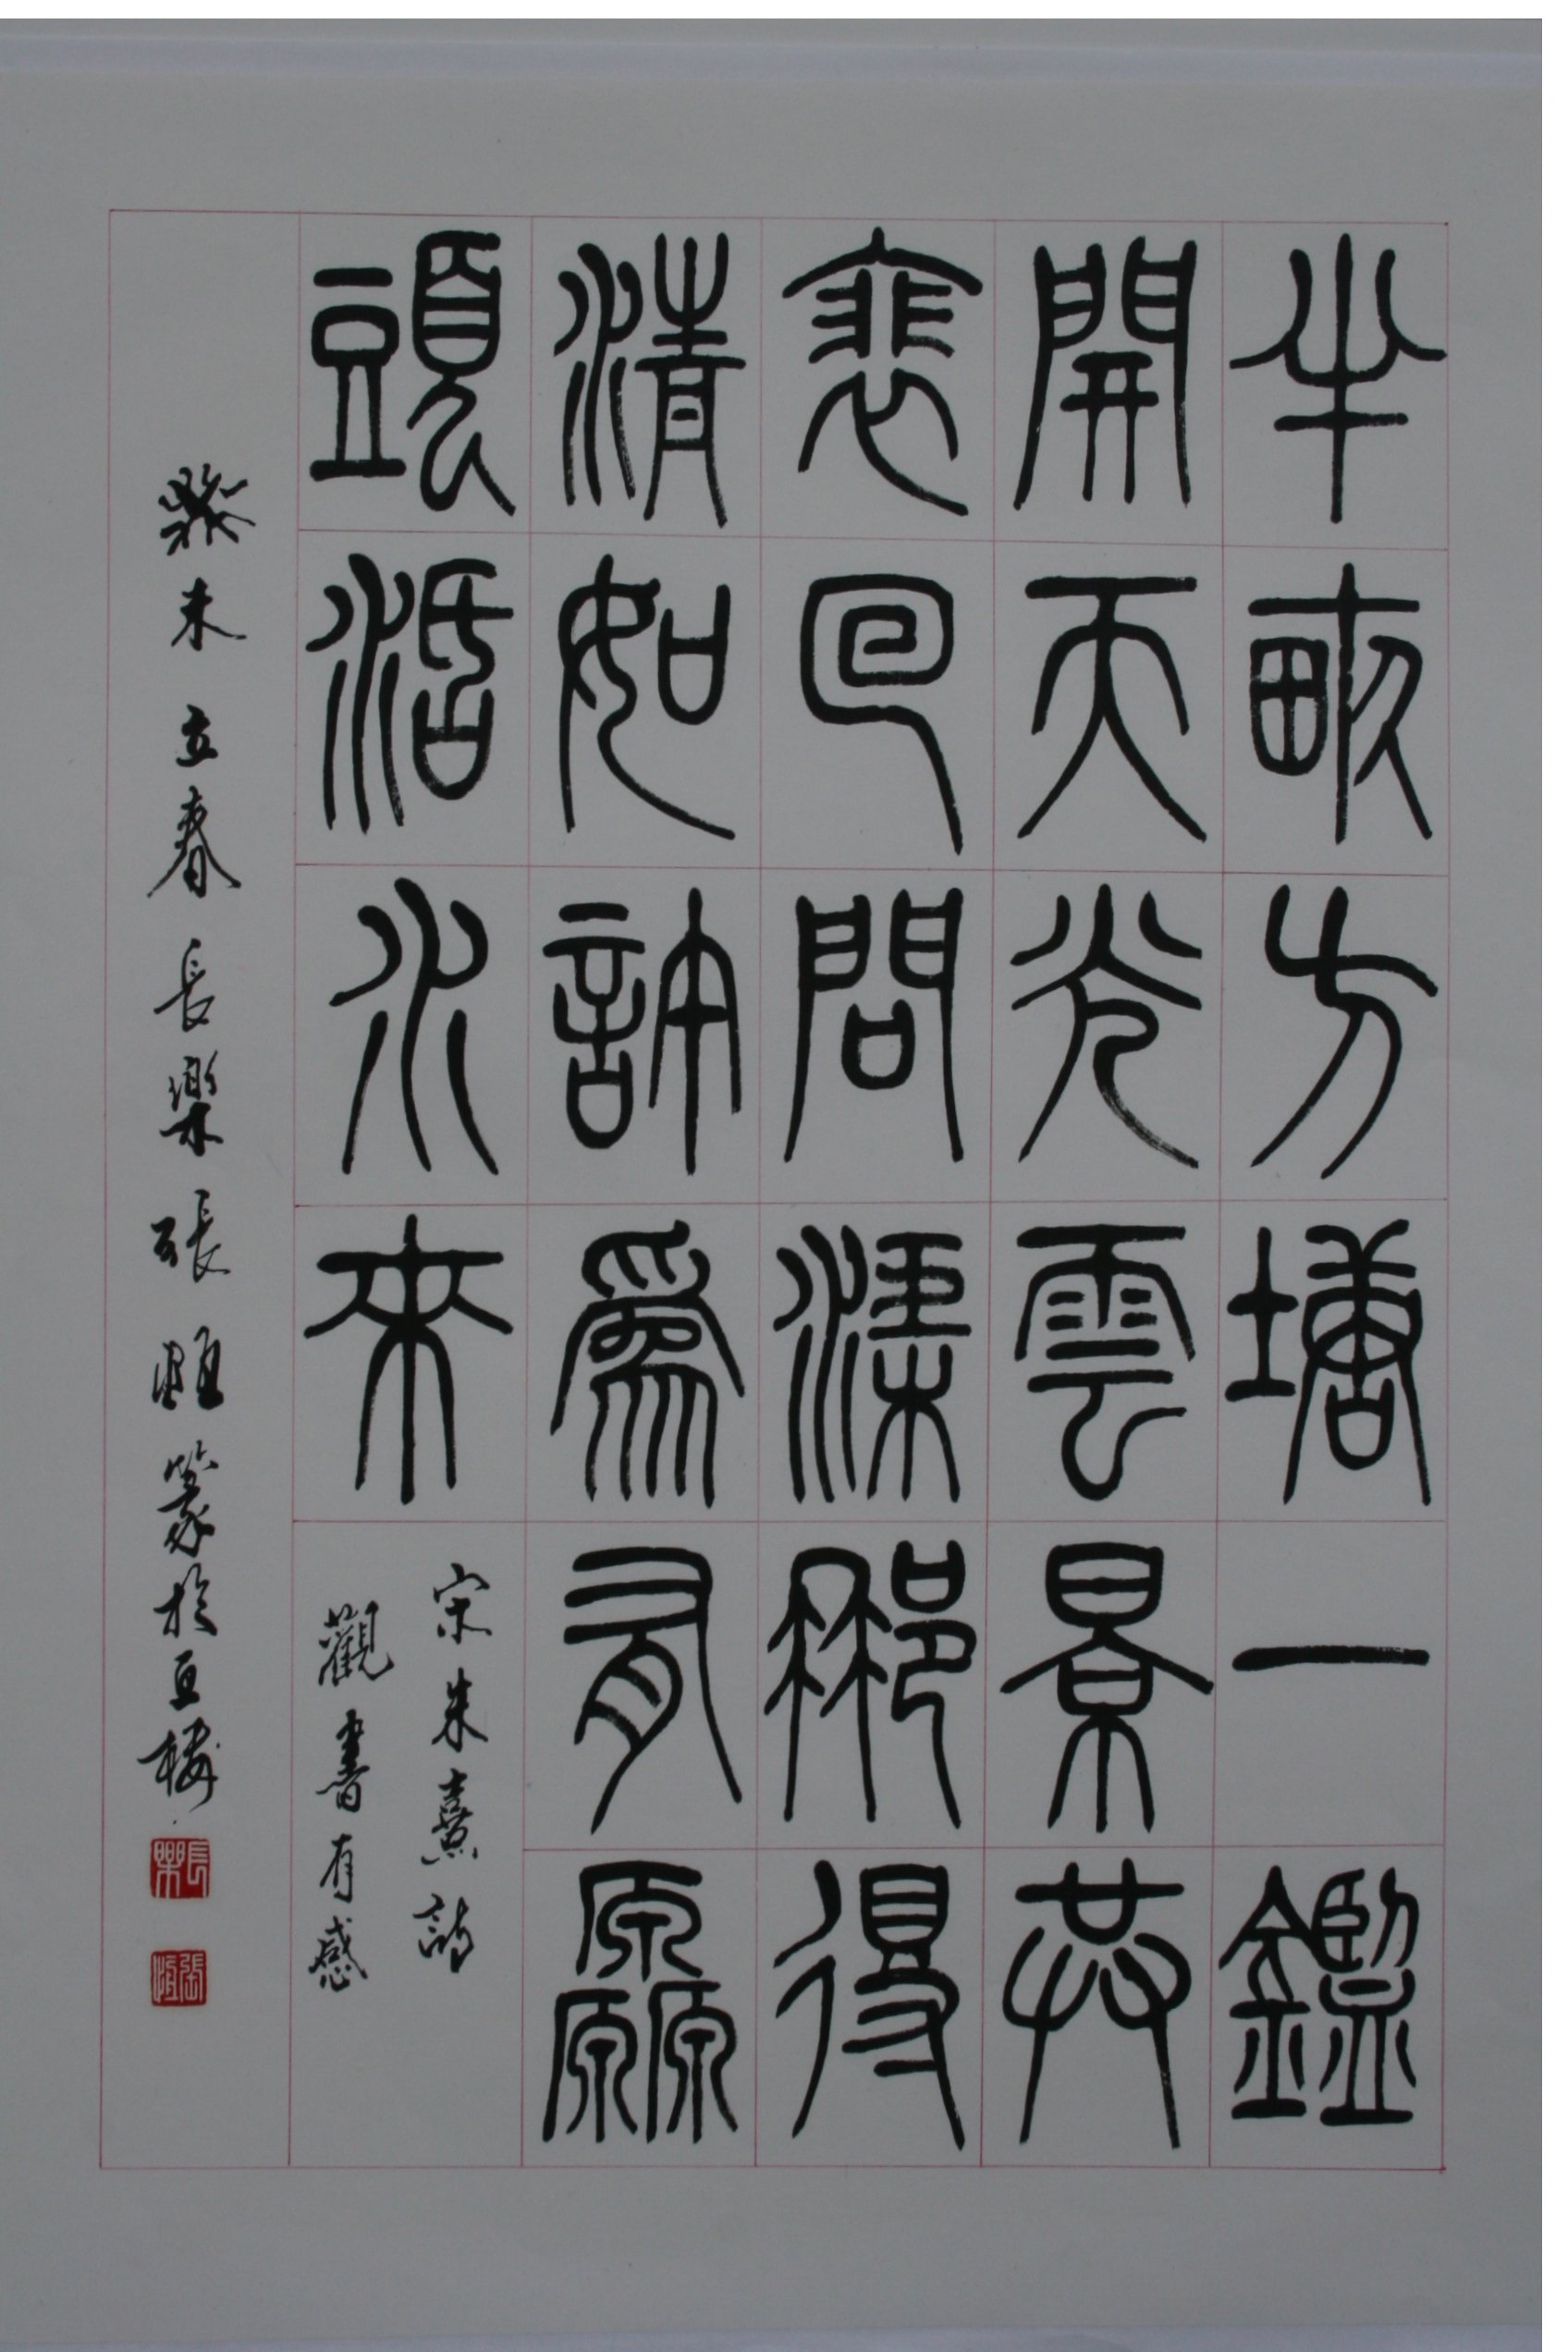 半畝方塘一鑑
開天光雲景共
裵回問渠那得
清如許為有原
頭活水來
宋朱熹詩
觀書有感
癸未立春長樂張雎篆於互樓
長樂